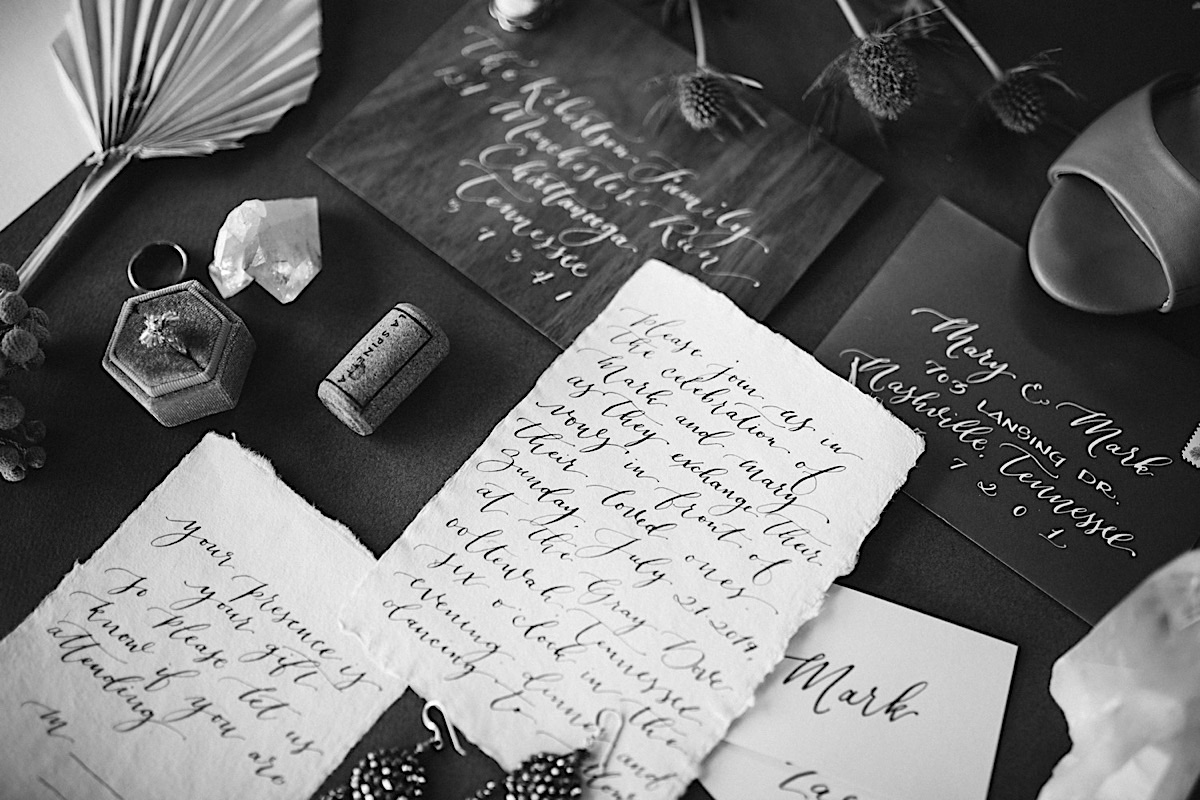 The Family
Manchester Run
Chattanooga
Tennessee
LA SPINETTA
Please join us in
the celebration of
Mark and Mary
as they exchange their
vows in front of
their loved ones.
Sunday, July 21, 2019,
at the Gray Dove
ooltewah Tennessee
six o'clock in the
evening dinner and
dancing to
Mary & Mark
703 LANSING DR.
Nashville, Tennessee
7 2 0 1
your presence is
your gift
so please let us
know if you are
attending
M
Mark